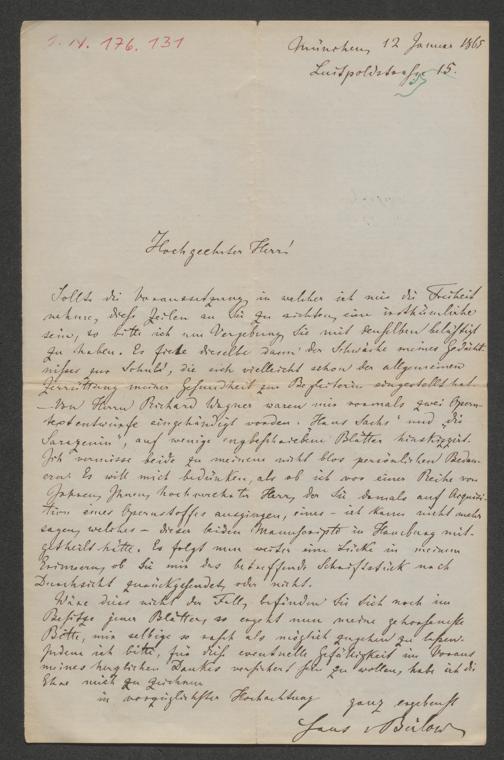 I. N. 176.131
München, 12 Januar 1865
Luitpoldstraße 15.
Hochgeehrter Herr!
Sollte die Voraussetzung, in welcher ich mir die Freiheit
nehme, diese Zeilen an Sie zu richten, eine irrthümliche
sein, so bitte ich um Vergebung, Sie mit denselben belästigt
zu haben. Es fiele dieselbe dann der Schwäche meines Gedächt-
nisses zur Schuld, die sich vielleicht schon der allgemeinen
Zerrüttung meiner Gesundheit zur Begleiterin eingestellt hat
– Von Herrn Richard Wagner waren mir vormals zwei Opern-
textentwürfe eingehändigt worden. „Hans Sachs" und „die
Sarazenin", auf wenige engbeschriebene Blätter hinskizzirt.
Ich vermisse beide zu meinem nicht blos persönlichen Bedau-
ern. Es will mich bedünken, als ob ich vor einer Reihe von
Jahren, Ihnen, hochverehrter Herr, der Sie damals auf Requisi-
tion eines Opernstoffes ausgingen, eines – ich kann nicht mehr
sagen, welches – dieser beiden Manuscripte in Hamburg mit-
getheilt hätte. Es folgt nun weiter eine Lücke in meinem
Erinnern, ob Sie mir das betreffende Schriftstück nach
Durchsicht zurückgesendet, oder nicht.
Wäre dies nicht der Fall, befänden Sie Sich noch im
Besitze jener Blätter, so ergeht nun meine gehorsamste
Bitte, mir selbige so rasch als möglich zugehen zu lassen.
Indem ich bitte, für diese eventuelle Gefälligkeit im Voraus
meines herzlichen Dankes versichert sein zu wollen, habe ich die
Ehre mich zu zeichnen
in vorzüglichster Hochachtung ganz ergebenst
Hans v Bülow